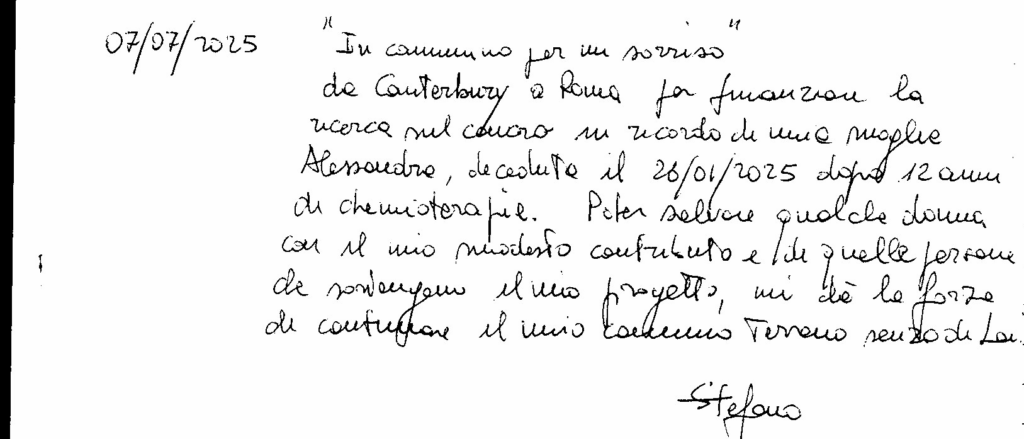 07/07/2025 "In cammino per un sorriso"
da Canterbury a Roma per finanziare la
ricerca sul cancro in ricordo di mia moglie
Alessandra, deceduta il 26/01/2025 dopo 12 anni
di chemioterapie. Poter salvare qualche donna
con il mio modesto contributo e di quelle persone
che sostengono il mio progetto, mi dà la forza
di continuare il mio cammino Terreno senza di Lei.
Stefano